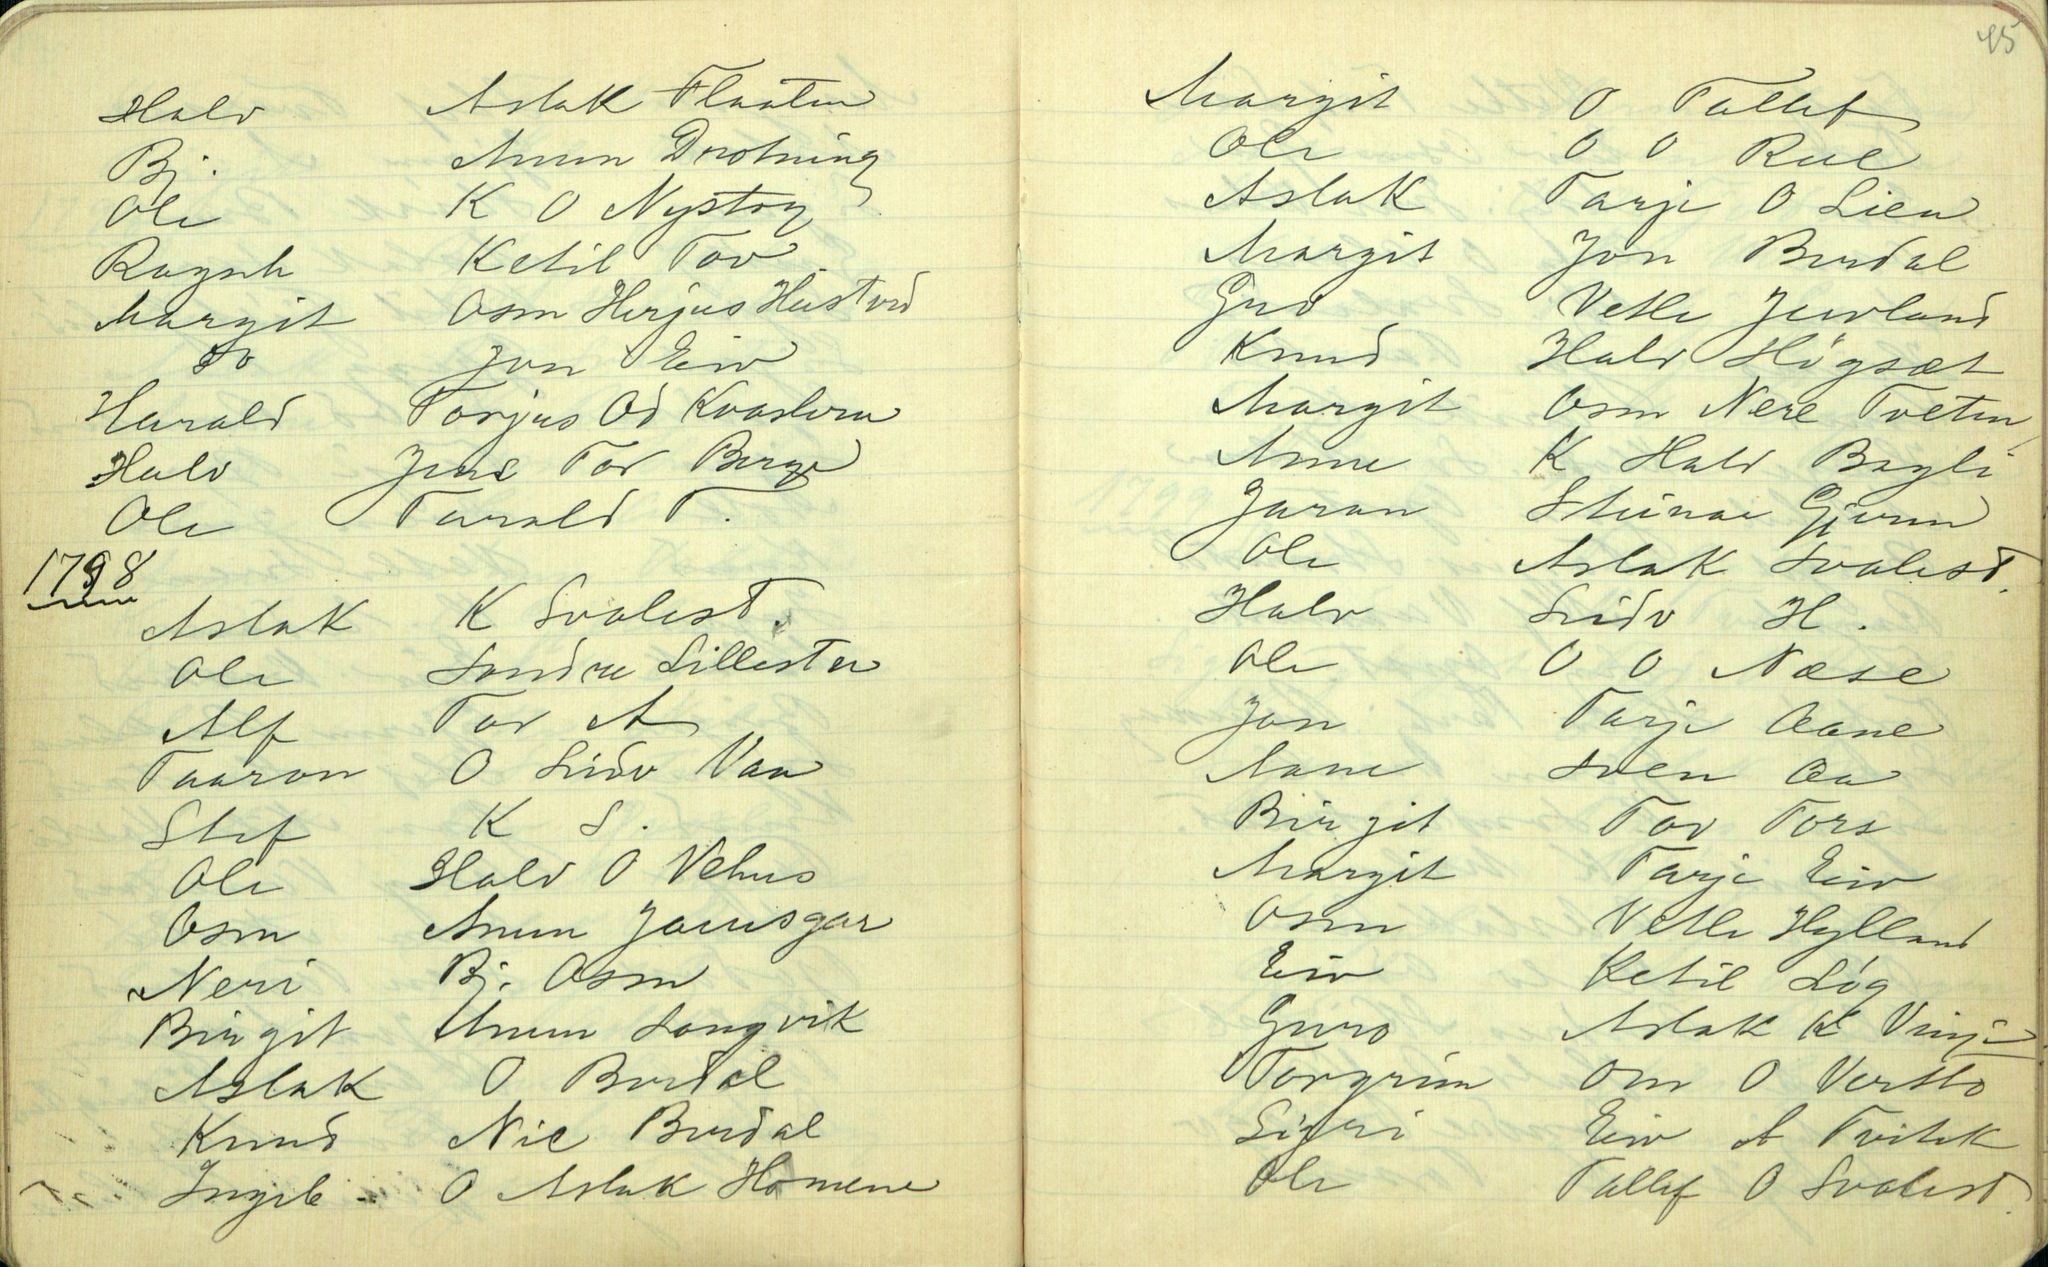 Halv Aslak Flaaten
Bj. Anun Drotning
Ole K O Nystog
Ragnh Ketil Tov
Margit Osm Herjus Hustved
do Jon Eiv
Harald Torjus Od Kvaslem
Halv Jens Tov Berge
Ole Tarald T.
1798
Aslak K Svalest.
Ole Sondre Lillester
Alf Tov A
Taaron O Sidv Vaa
Stef K S.
Ole Halv O Vehus
Osm Anun Jamsgar
Neri Bj. Osm
Birgit Anun Songvik
Aslak O Burdal
Knud Nie Burdal
Ingeb O Aslak Homene
45
Margit O Tallef
Ole O O Rue
Aslak Tarje O Lien
Margit Jon Burdal
Guv Vetle Juvland
Knud Halv Högsæt
Margit Osm Nere Tveten
Anne K Halv Bøgli
Jaran Steinar Gjerun
Ole Aslak Svalest.
Halv Sidv H.
Ole O O Næse
Jon Tarje Aane
Aane Sven Aa
Birgit Tov Tors
Margit Tarje Eiv
Osm Vetle Hylland
Eiv Ketil Løg
Guro Aslak K Vinje
Torgrim Om O Versto
Sigri Eiv A Tvitek
Ole Tallef O Svalest.